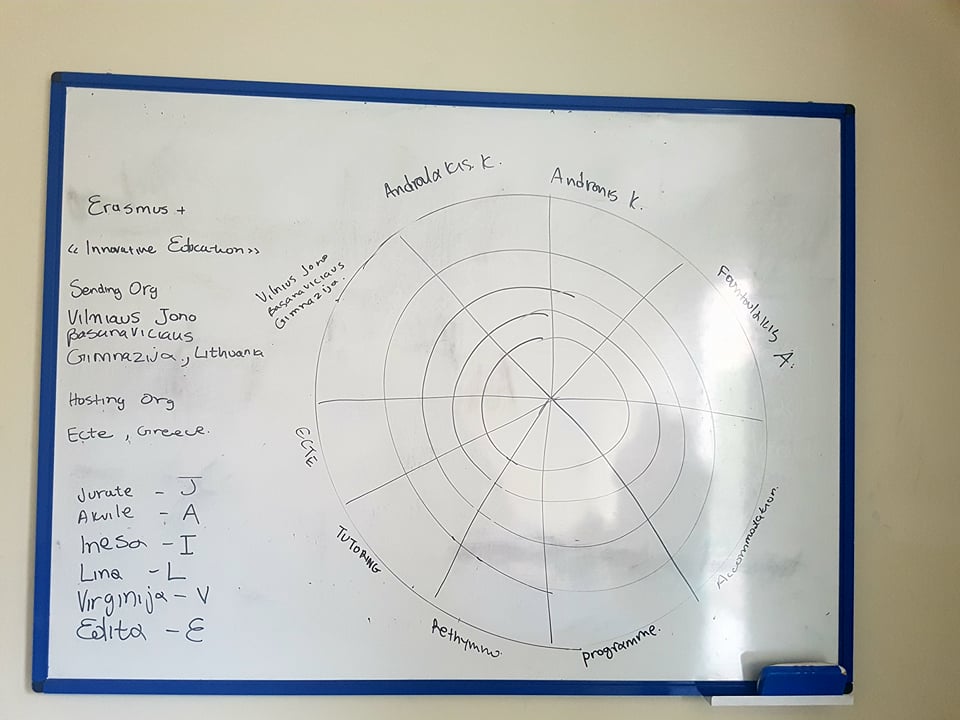 Erasmus +
« Innovative Education »
Sending Org
Vilniaus Jono
Basanaviciaus
Gimnazija., Lithuania
Hosting Org
Ecte , Greece.
Jurate - J
Akvile - A
Inesa - I
Lina - L
Virginija - V
Edita - E
Andralakis K.
Andronis K.
Vilnius Jono
Basanaviciaus
Gimnazija.
A.
ECTE
TUTORING
Rethymno.
programme.
Accommodation.